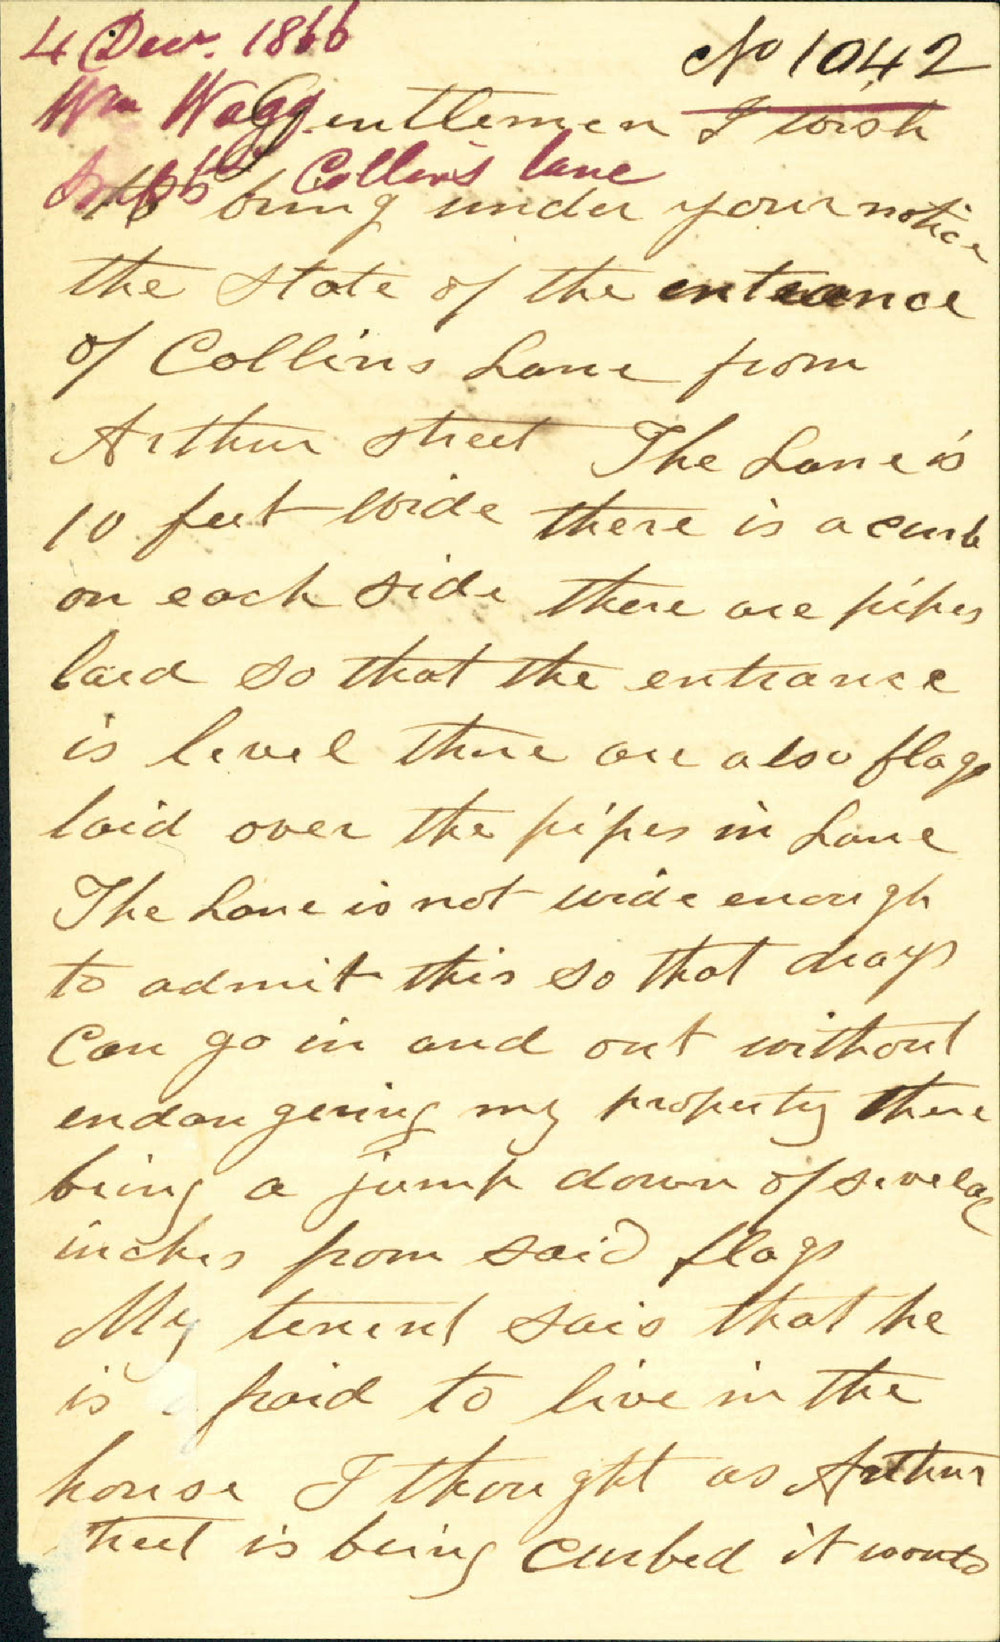 4 Decr. 1866
No 1042
Wm Wagg
Gentlemen I wish
Collins lane
to bring under your notice
the state of the entrance
of Collins Lane from
Arthur street The Lane is
10 feet wide there is a curb
on each side there are pipes
laid so that the entrance
is level there are also flags
laid over the pipes in Lane
The Lane is not wide enough
to admit this so that drays
Can go in and out without
endangering my property there
being a jump down of sevelal
inches from said flags
My tenent sais that he
is a fraid to live in the
house I thought as Arthur
treet is being curbed it would